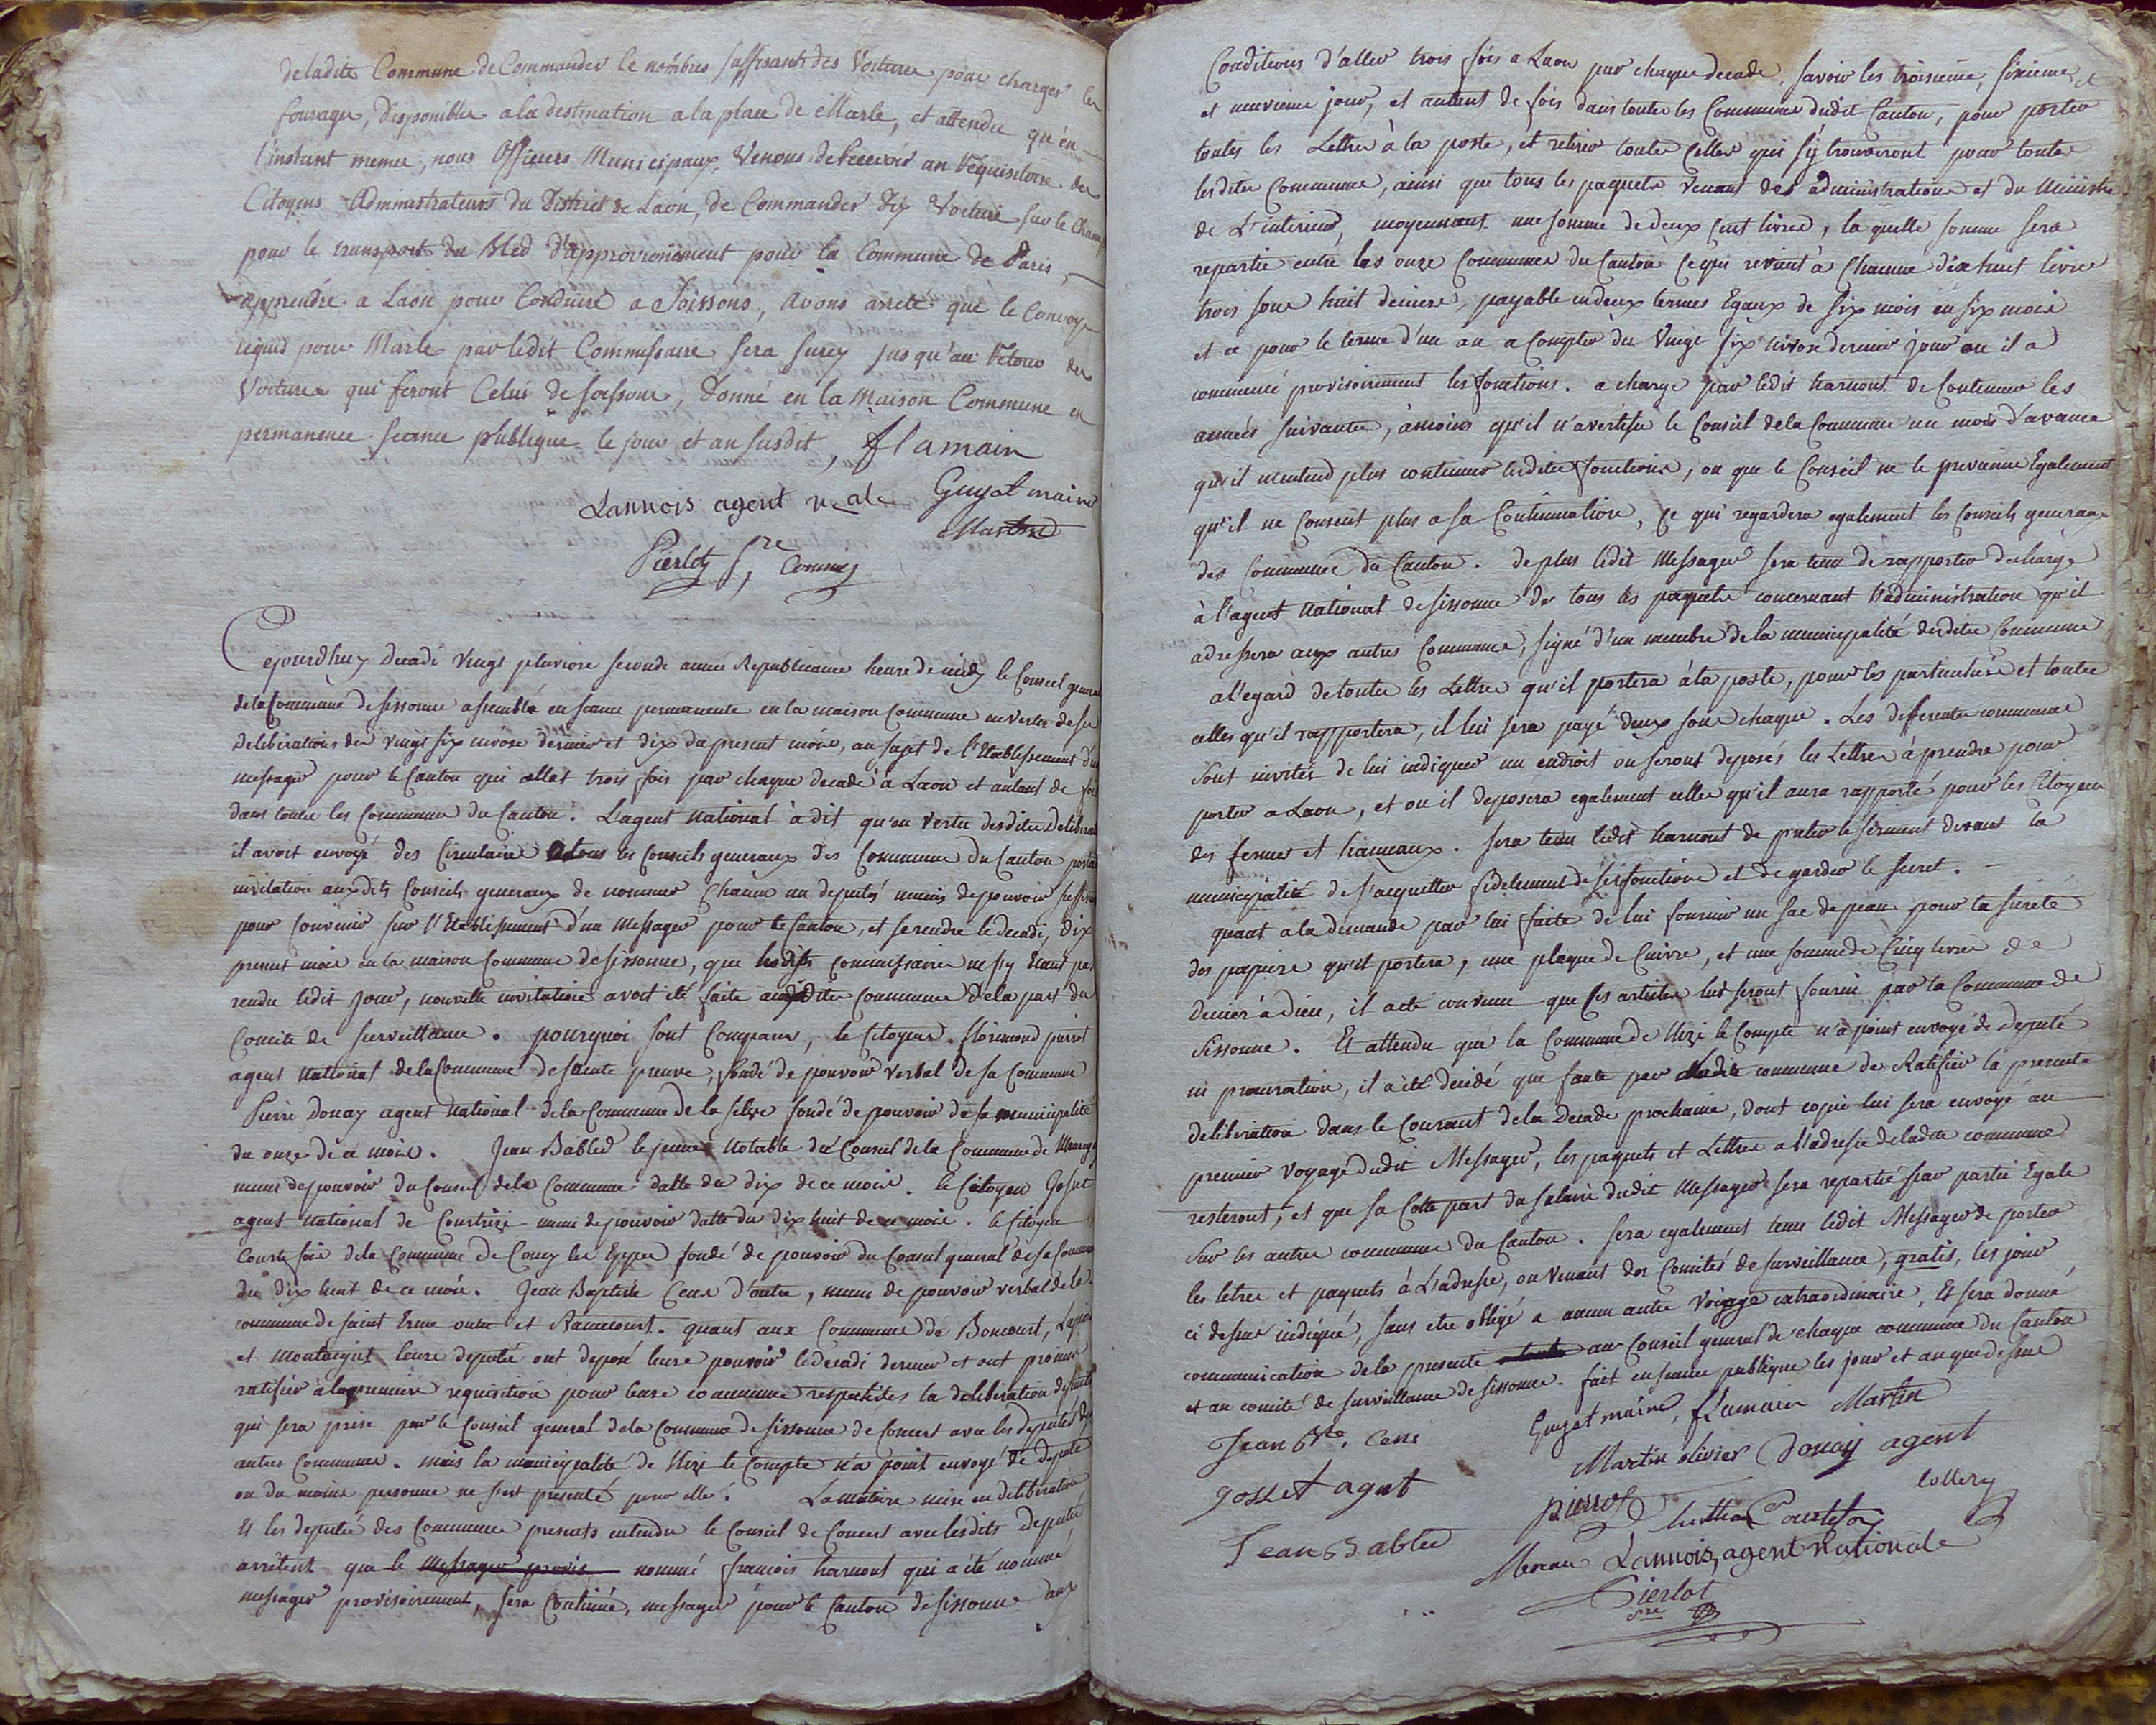 deladite Commune de Commander le nombres suffisants des Voitures pour charger les
fourages, disponibles a la destination a la place de Marle, et attendu qu'en
l'instant meme, nous Officiers Municipaux, Venons de Recevoir un Requisitoire des
Citoyens Administrateurs du District de Laon, de Commander dix Voiture sur le Champ
pour le transport du Bled d'approvionement pour la Commune de Paris,
apprendre a Laon pour Conduire a Soissons, avons arreté que le Convoye
requis pour Marle par ledit Commissaire sera surcy jusqu'au Retour des
Voitures qui feront Celui de soissons, Donné en la Maison Commune en
permanence seance publique le jour et an susdit, flamain
Lannois agent n ale Guyot maire
Martin
Pierlot sre Commis
Cejourdhuy decadi vingt pluviose seconde année Republicaine heure de midy le Conseil general
dela Commune de sissonne assemblé en seance permanente en la maison Commune en vertu de ses
deliberations des vingt six nivose dernier et dix du present mois, au sujet de l'Etablissement d'un
messager pour le Canton qui allat trois fois par chaque decade à Laon et autant de fois
dans toutes les Communes du Canton. L'agent National à dit qu'en vertu desdites deliberations
il avoit envoyé des Circulaires a tous les Conseils generaux des Communes du Canton portant
invitation auxdits Conseils generaux de nommer Chacun un deputés munis de pouvoir suffisant
pour convenir sur l'Etablissement d'un Messager pour le Canton, et se rendre le decadi, dix
present mois en la maison Commune de sissonne, que lesdits commissaires ne s'y etant pas
rendu ledit jour, nouvelle invitation avoit été faite auxdites Communes de la part du
Comité de surveillance. pourquoi sont Comparus, le Citoyen florimond pierrot
agent National de la Commune de sainte preuve, fondé de pouvoir verbal de sa Commune
Pierre Donay agent National dela Commune de la selve fondé de pouvoir de sa municipalité
du onze de ce mois. Jean Babled le jeune Notable du Conseil dela Commune de
muni de pouvoir du Conseil dela Commune datte du dix de ce mois. le Citoyen Gosset
agent National de Courtrizi muni de pouvoir datte du dix huit de ce mois. le Citoyen
Courtefois dela Commune de Coucy les Eppes fondé de pouvoir du Conseil general de sa Commune
du dix huit de ce mois. Jean Baptiste Cens d'outre, muni de pouvoir verbal dela
commune de saint Erme outre et Ramecourt. quant aux Communes de Boncourt, Lapion
et Montaigut leurs deputés ont deposé leurs pouvoirs le decadi dernier et ont promis
ratifier à la premiere requisition pour leurs communes respectives la deliberation
qui sera prise par le Conseil general dela Commune de sissonne de Concert avec les deputés des
autres Communes. mais la municipalité de Nizi le Compte n'a point envoyé de deputé
ou du moins personne ne s'est presenté pour elle. La matiere mise en deliberation
Et les deputés des Communes presents entendu le Conseil de Concert avec lesdits deputés
arrêtent que le messager provis nommé francois harnout qui a été nommé
messager provisoirement, sera Continué, messager pour le Canton de sissonne aux
Conditions d'aller trois fois a Laon par chaque decade, savoir les troisieme, sixieme
et neuvieme jour, et autant de fois dans toutes les Communes dudit Canton, pour porter
toutes les Lettres à la poste, et retirer toutes Celles qui s'y trouveront pour toutes
lesdites Communes, ainsi que tous les paquets venant des administrations et du Ministre
de L'interieur, moyennant une somme de deux cent livres, la quelle somme sera
repartie entre les onze Communes du Canton Ce qui revient à Chacune dix huit livres
trois sous huit deniers, payable en deux termes Egaux de six mois en six mois
et ce pour le terme d'un an a Compter du Vingt six nivose dernier jour ou il a
commencé provisoirement les fonctions. a charge par ledit harnout de Continuer les
années suivantes, àmoins qu'il n'avertisse le Conseil de la Commune un mois d'avance
qu'il n'entend plus continuer lesdites fonctions, ou que le Conseil ne le previenne Egalement
qu'il ne Consent plus a sa Continuation, ce qui regardera egalement les Conseils generaux
des Communes du Canton. de plus ledit Messager sera tenu de rapporter decharge
à l'agent National de sissonne de tous les paquets concernant l'administration qu'il
adressera aux autres Communes, signé d'un membre de la municipalité desdites Communes
a l'egard de toutes les Lettres qu'il portera à la poste, pour les particuliers et toutes
celles qu'il rapportera, il lui sera payé deux sous chaque. Les differentes communes
sont invités de lui indiquer un endroit ou seront deposés les Lettres à prendre pour
porter a Laon, et ou il deposera egalement celles qu'il aura rapporté pour les Citoyens
des fermes et hameaux. sera tenu ledit harnout de preter le serment devant la
municipalité de s'acquitter fidelement de ses fonctions et de garder le secret.
quant a la demande par lui faite de lui fournir un sac de peau pour la sureté
des papiers qu'il portera, une plaque de Cuivre, et une somme de Cinq livres de
denier à dieu, il a eté convenu que ces articles lui seront fourni par la Commune de
sissonne. Et attendu que la Commune de Nizi le Compte n'a point envoyé de deputé
ni procuration, il a été decidé que faute par ladite commune de Ratifier la presente
deliberation dans le Courant dela Decade prochaine, dont copie lui sera envoyé au
premier voyage dudit Messager, les paquets et Lettres a l'adresse de ladite commune
resteront, et que sa Cotte part du salaire dudit Messager sera repartie par partie Egale
sur les autres communes du Canton. sera egalement tenu ledit Messager de porter
les letres et paquets à L'adresse, ou venant des Comités de surveillance, gratis, les jours
ci dessus indiqués, sans etre obligé a aucun autre voyage extraordinaire, Et sera donné
communication dela presente au Conseil general de chaque commune du Canton
et au comité de surveillance de sissonne. fait en seance publique les jour et an que dessus
Jean Bte. Cens Guyot maire, flamain Martin
gosset agent Martin olivier Donay agent
pierrot Courtefois Collery
Jean Bablee Mereau Lannois, agent nationale
Pierlot
sre